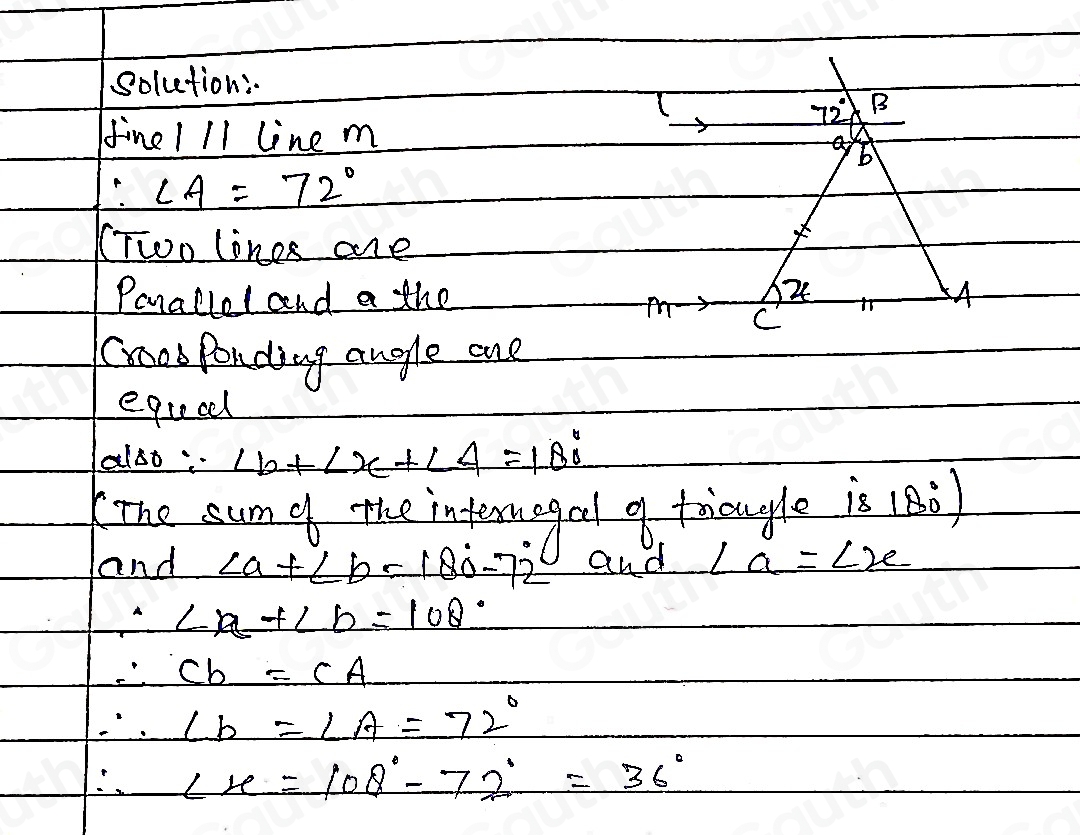 Solution:.
line l // line m
∴ ∠A = 72°
(Two lines are
Parallel and a the
Crossponding angle are
equal
also ∵ ∠b + ∠x + ∠A = 180°
(The sum of the internegal of triangle is 180°)
and ∠a + ∠b = 180° - 72° and ∠a = ∠x
∴ ∠x + ∠b = 108°
∴ Cb = CA
∴ ∠b = ∠A = 72°
∴ ∠x = 108° - 72° = 36°
l
72° B
a b
m
x
C
A